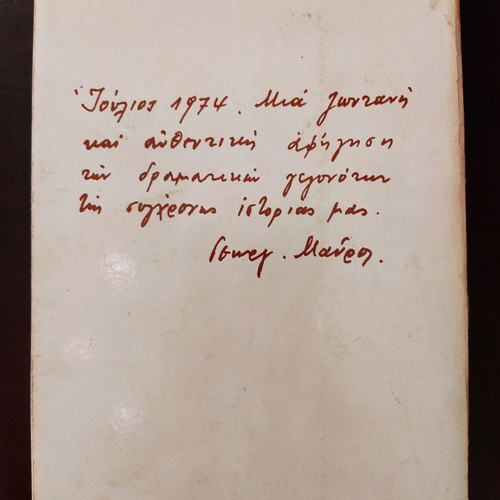 Ἰούλιος 1974. Μιά ζωντανή
καί αὐθεντική ἀφήγηση
τῶν δραματικῶν γεγονότων
τῆς συγχρόνης ἱστορίας μας.
Γεωργ. Μαῦρος.